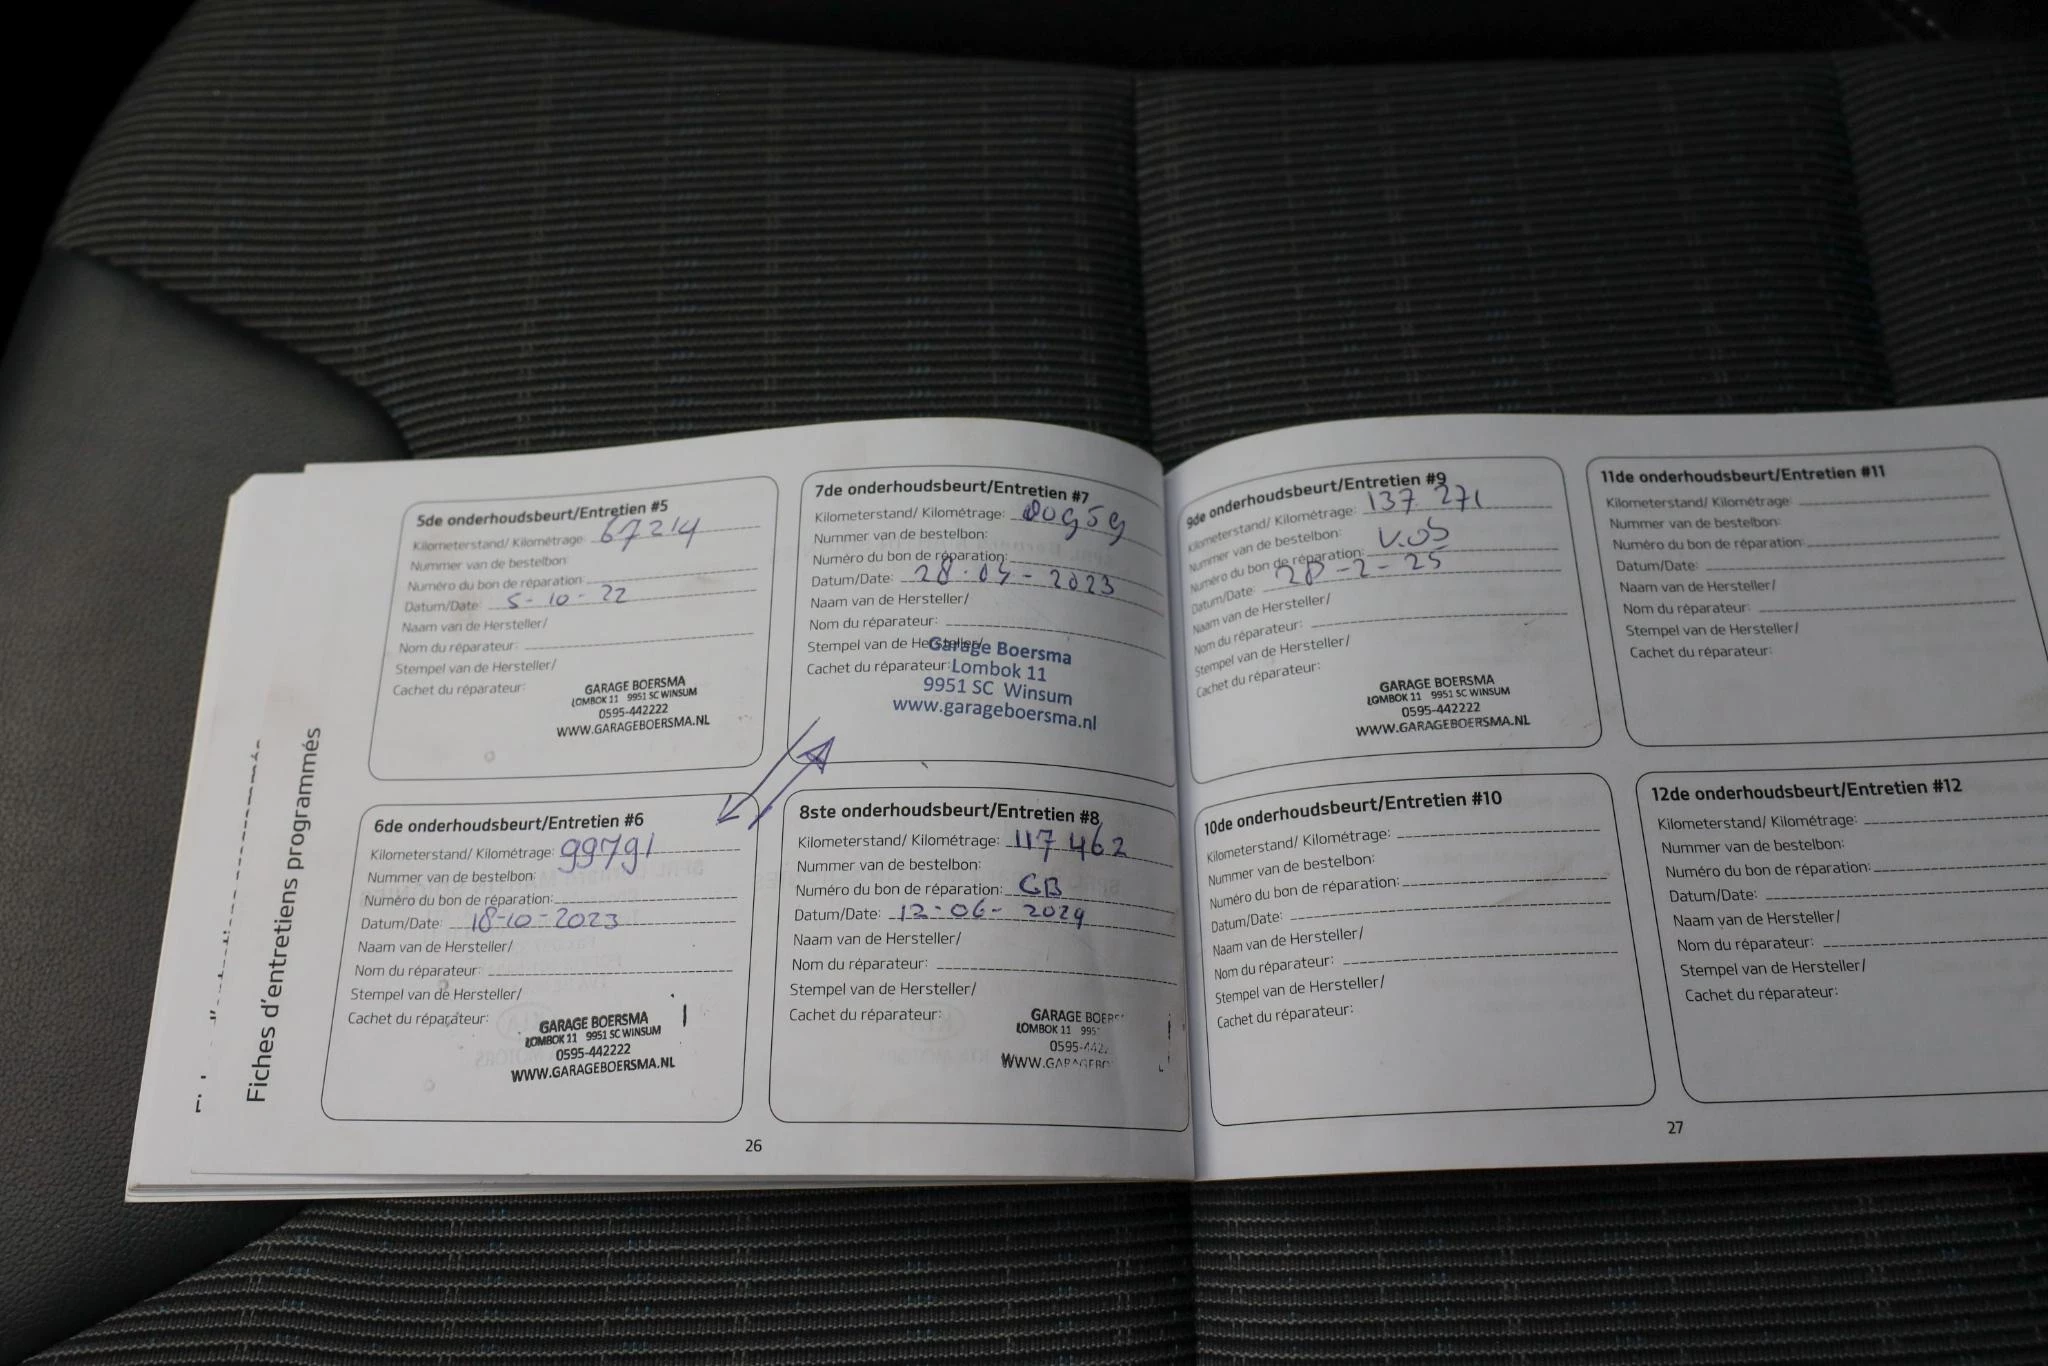 Fiches d'entretiens programmés
5de onderhoudsbeurt/Entretien #5
Kilometerstand/ Kilométrage: 67214
Nummer van de bestelbon:
Numéro du bon de réparation:
Datum/Date: 5-10-22
Naam van de Hersteller/
Nom du réparateur:
Stempel van de Hersteller/
Cachet du réparateur:
GARAGE BOERSMA
LOMBOK 11 9951 SC WINSUM
0595-442222
WWW.GARAGEBOERSMA.NL
6de onderhoudsbeurt/Entretien #6
Kilometerstand/ Kilométrage: 99791
Nummer van de bestelbon:
Numéro du bon de réparation:
Datum/Date: 18-10-2023
Naam van de Hersteller/
Nom du réparateur:
Stempel van de Hersteller/
Cachet du réparateur:
GARAGE BOERSMA
LOMBOK 11 9951 SC WINSUM
0595-442222
WWW.GARAGEBOERSMA.NL
7de onderhoudsbeurt/Entretien #7
Kilometerstand/ Kilométrage:
Nummer van de bestelbon:
Numéro du bon de réparation:
Datum/Date: 2023
Naam van de Hersteller/
Nom du réparateur:
Stempel van de Hersteller/
Cachet du réparateur:
Garage Boersma
Lombok 11
9951 SC Winsum
www.garageboersma.nl
8ste onderhoudsbeurt/Entretien #8
Kilometerstand/ Kilométrage: 117462
Nummer van de bestelbon:
Numéro du bon de réparation: GB
Datum/Date: 12-06-2024
Naam van de Hersteller/
Nom du réparateur:
Stempel van de Hersteller/
Cachet du réparateur:
GARAGE
LOMBOK 11
0595-442
26
9de onderhoudsbeurt/Entretien #9
Kilometerstand/ Kilométrage: 137.271
Nummer van de bestelbon:
Numéro du bon de réparation: V.OS
Datum/Date: 28-2-25
Naam van de Hersteller/
Nom du réparateur:
Stempel van de Hersteller/
Cachet du réparateur:
GARAGE BOERSMA
LOMBOK 11 9951 SC WINSUM
0595-442222
WWW.GARAGEBOERSMA.NL
10de onderhoudsbeurt/Entretien #10
Kilometerstand/ Kilométrage:
Nummer van de bestelbon:
Numéro du bon de réparation:
Datum/Date:
Naam van de Hersteller/
Nom du réparateur:
Stempel van de Hersteller/
Cachet du réparateur:
11de onderhoudsbeurt/Entretien #11
Kilometerstand/ Kilométrage:
Nummer van de bestelbon:
Numéro du bon de réparation:
Datum/Date:
Naam van de Hersteller/
Nom du réparateur:
Stempel van de Hersteller/
Cachet du réparateur:
12de onderhoudsbeurt/Entretien #12
Kilometerstand/ Kilométrage:
Nummer van de bestelbon:
Numéro du bon de réparation:
Datum/Date:
Naam van de Hersteller/
Nom du réparateur:
Stempel van de Hersteller/
Cachet du réparateur:
27